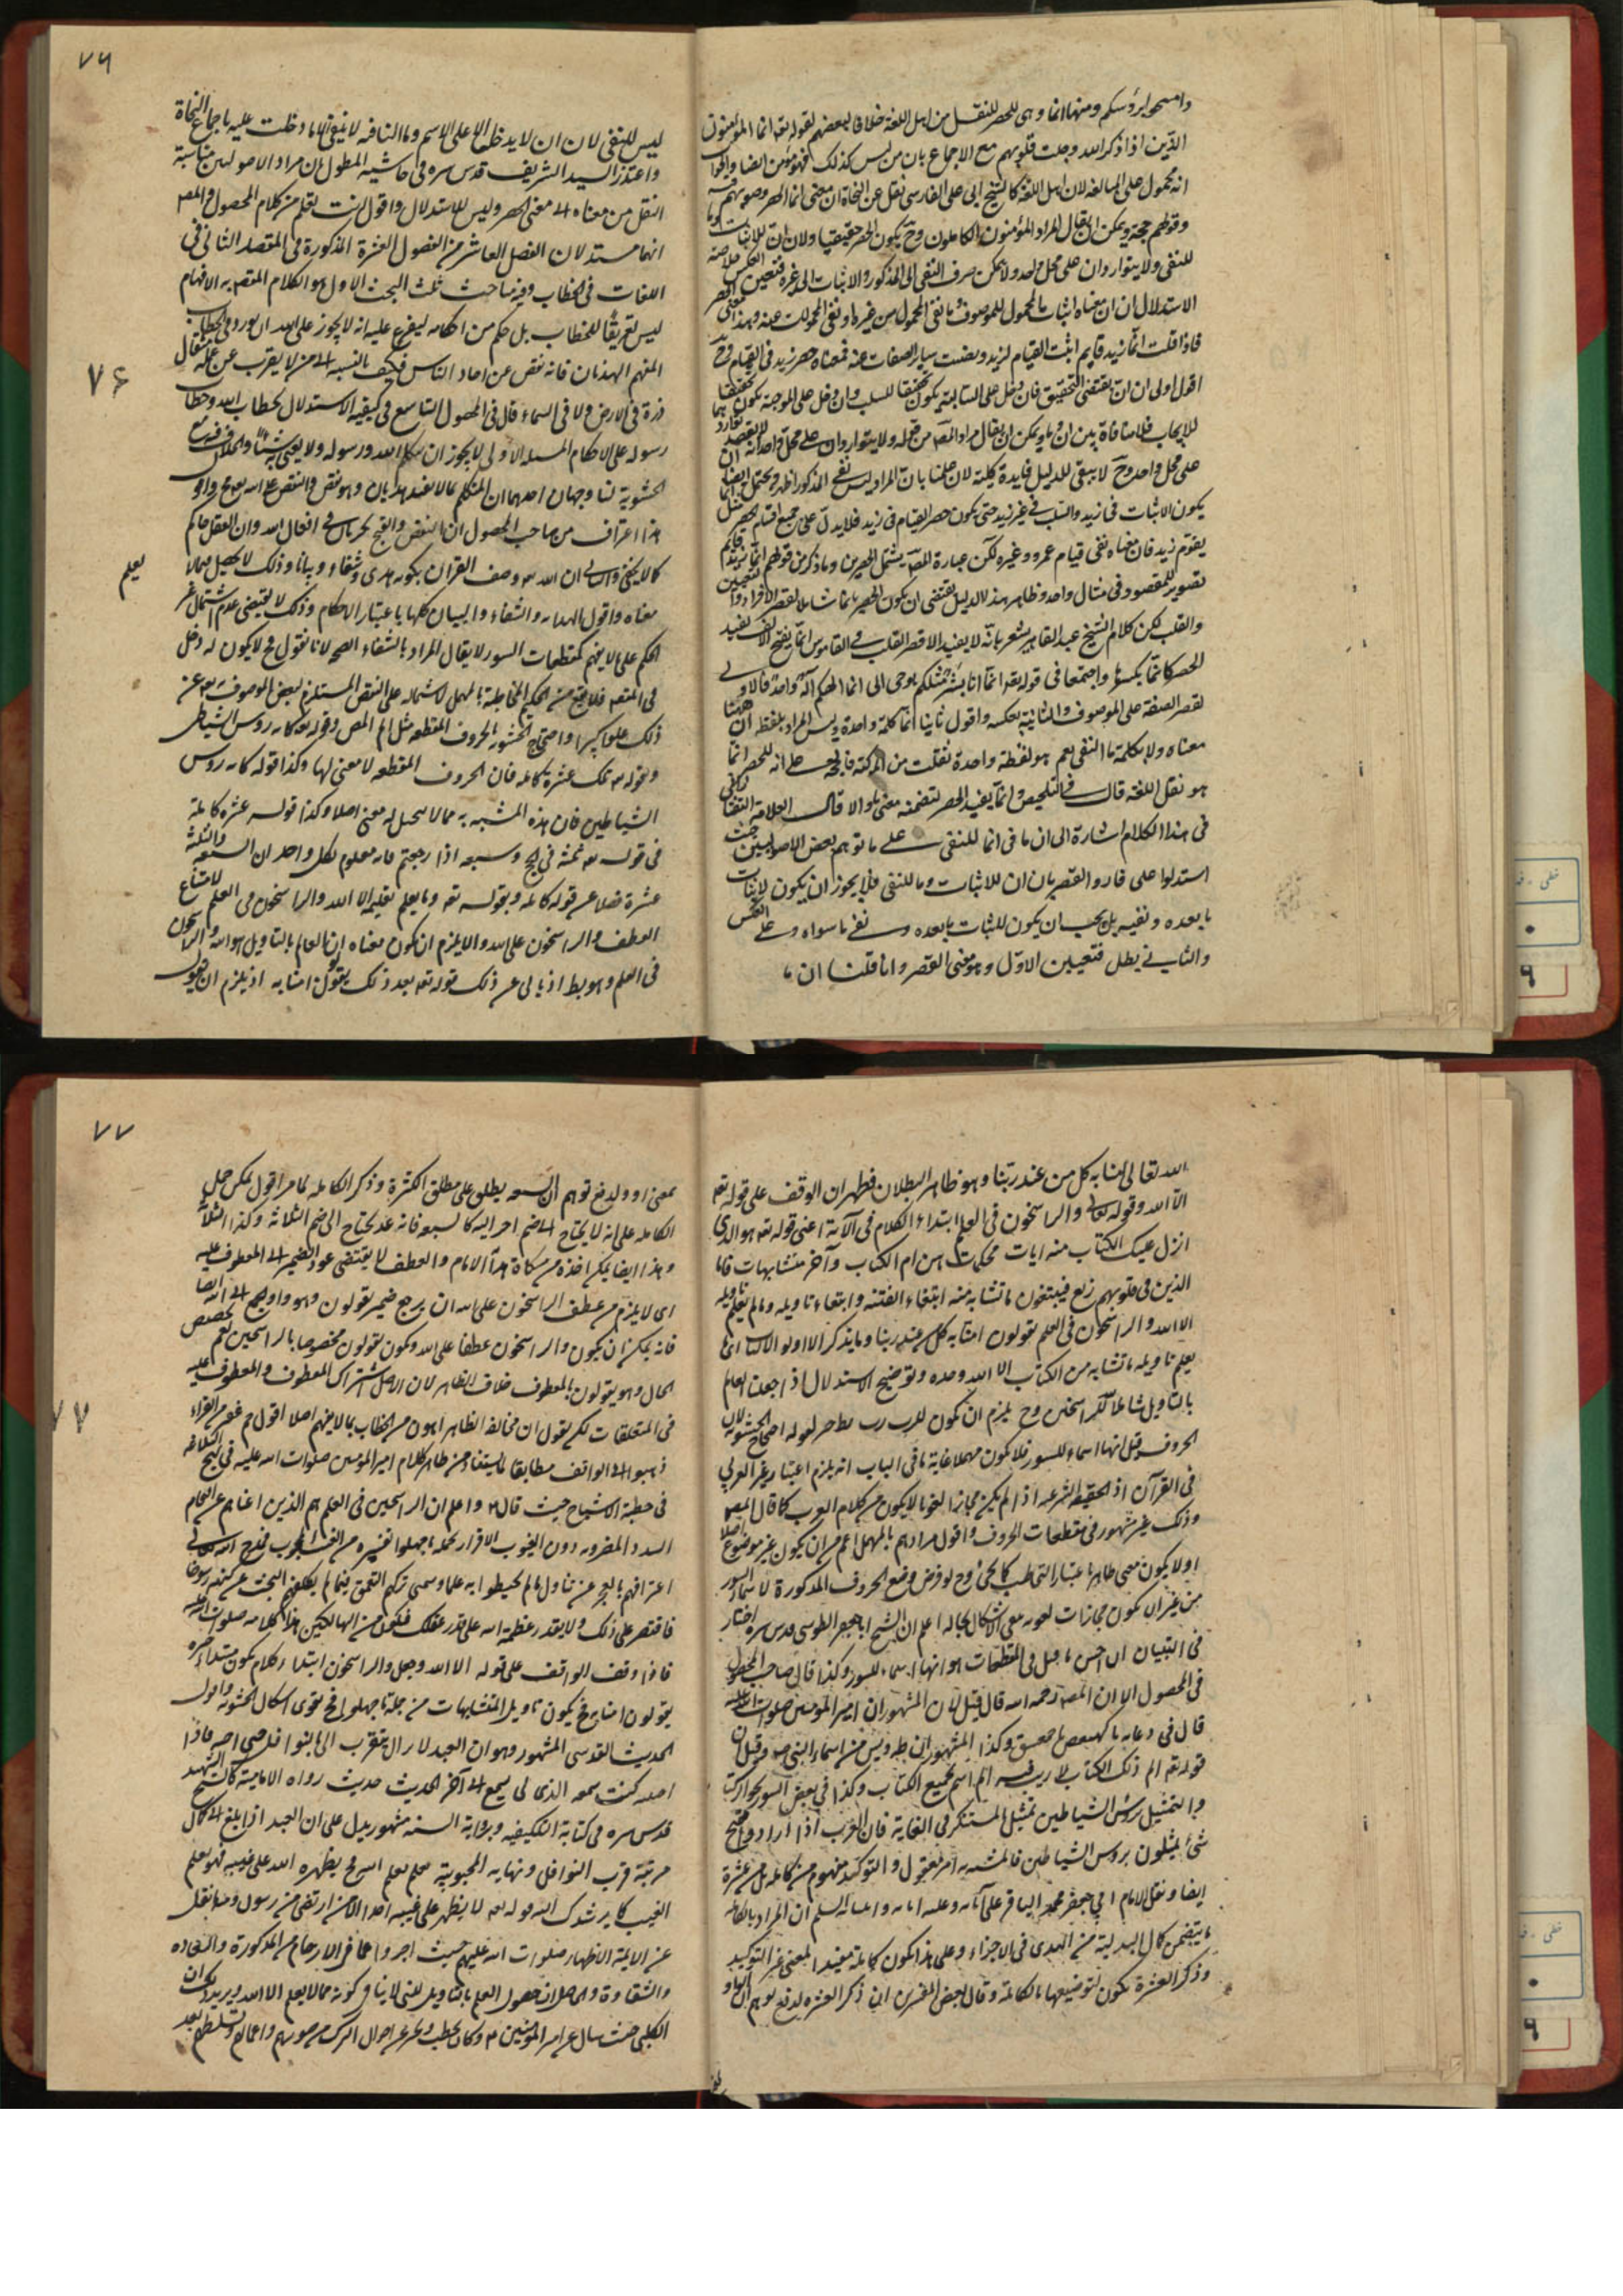 وامسحوا برؤسكم ومنها انما وهى للحصر للنقل من اهل اللغة خلافا لبعضهم لقوله تعه انما المؤمنون
الذين اذا ذكر الله وجلت قلوبهم مع الاجماع بان من ليس كذلك فهو مؤمن ايضا والجواب
انه محمول على المبالغة لان اهل اللغة كالشيخ ابى على الفارسى نقل عن النحاة ان معنى انما الحصر وصوبهم فيه
وقولهم حجة ويمكن ان يقال المراد المؤمنون الكاملون وح يكون الحصر حقيقيا ولان ان للاثبات وما
للنفى ولا يتواردان على محل واحد ولا يمكن صرف النفى الى المذكور والاثبات الى غيره فتعين العكس
الاستدلال ان ان معناه اثبات المحمول للموصوف وما نفى المحمول من غيره او نفى المحمولات عنه وهذا معنى الحصر
فاذا قلت انما زيد قايم اثبت القيام لزيد ونفيت ساير الصفات عنه فمعناه حصر زيد فى القيام
اقول اولى ان ان يقتضى التحقيق فان دخل على السالبة يكون تحقيقا للسلب وان دخل على الموجبة يكون تحقيقا
للايجاب فلا منافاة بين ان وما ويمكن ان يقال مراد المصه من قوله ولا يتواردان على محل واحد
على محل واحد وح لا يبقى للدليل فايدة كلية لان علمنا بان المراد ليس نفى المذكور اظهر ويحتمل ايضا ان
يكون الاثبات فى زيد والسلب فى غير زيد حتى يكون حصر القيام فى زيد فلا يدل على جميع اقسام الحصر
يقوم زيد فان معناه نفى قيام عمرو وغيره لكن عبارة المصه يشمل الحصرين وما ذكر من قولهم انما زيد قايم
تصوير للمقصود فى مثال واحد وظاهر هذا الدليل يقتضى ان يكون الحصر بانما شاملا لقصر الافراد والتعيين
والقلب لكن كلام الشيخ عبد القاهر يشعر بانه لا يفيد الا قصر القلب وفى القاموس انما بفتح الالف يفيد
الحصر كانما بكسرها واجتمعا فى قوله تعه انما انا بشر مثلكم يوحى الى انما الهكم اله واحد فالاولى
لقصر الصفة على الموصوف والثانية بعكسه واقول ثانيا انما كلمة واحدة وليس المراد بلفظة ان ههنا
معناه ولا بكلمة ما النفى نعم هو لفظة واحدة نقلت من المركبة فالحجة على انه للحصر انما
هو نقل اللغة قال فى التلخيص وانما يفيد الحصر لتضمنه معنى ما والا قال العلامة التفتازانى
فى هذا الكلام اشارة الى ان ما فى انما للنفى على ما توهم بعض الاصوليين حيث
استدلوا على فادو القصر بان ان للاثبات وما للنفى فلا يجوز ان يكون لاثبات
ما بعده ونفيه بل يجب ان يكون للثبات ما بعده ونفى ما سواه وعلى العكس
والثانى يطل فتعين الاول وهو معنى القصر واما قلنا ان ما
٧٦
ليس للنفى لان ان لا يدخل الا على الاسم وما النافيه لا ينفى الا ما دخلت عليه باجماع النحاة
واعتذر السيد الشريف قدس سره فى حاشيه المطول بان مراد الاصوليين مناسبة
النقل من معناه الى معنى الحصر وليس للاستدلال واقول انت تعلم من كلام المحصول والمصه
انهما مستدلان الفصل العاشر من الفصول العشرة المذكورة فى المقصد الثانى فى
اللغات فى الخطاب وفيه مباحث ثلث البحث الاول هو الكلام المقصود به الافهام
ليس تعريفا للخطاب بل حكم من احكامه ليفرع عليه انه لا يجوز على الله ان يورد فى الخطاب
المنهم الهذيان فانه نقص عن احاد الناس فكيف بالنسبة الى من لا يعزب عن علمه مثقال
٧۶
ذرة فى الارض ولا فى السماء قال فى المحصول التاسع فى كيفية الاستدلال بخطاب الله وخطاب
رسوله على الاحكام المسئلة الاولى لا يجوز ان يتكلم الله ورسوله ولا يعنى به شيئا والخلاف فيه مع
الحشوية لنا وجهان احدهما ان المتكلم بما لا يفيد هذيان وهو نقص والنقص على الله تعه مح واقول
هذا اعتراف من صاحب المحصول ان النقص والقبح يجريان فى افعال الله وان العقل حاكم
كما لا يخفى والثانى ان الله تعه وصف القران بكونه هدى وشفاء وبيانا وذلك لا يحصل بما لا
يعلم
معناه واقول الهدايه والشفاء والبيان كلها باعتبار الاحكام وذلك لا يقتضى عدم اشتمال غير
الحكم على ما لا يفهم كمقطعات السور لا يقال المراد بالشفاء الصحه لانا نقول مح لا يكون له دخل
فى المقصود فلا يقع من الحكيم المخاطبة بالمهمل لاشتماله على النقص المستلزم لبعض الموصوف تعه عن
ذلك علوا كبيرا واحتجاج الحشويه بالحروف المقطعه مثل الم المص وقوله تعه كانه روس الشياطين
وقوله تعه تلك عشرة كامله فان الحروف المقطعه لا معنى لها وكذا قوله كانه روس
الشياطين فان هذه المشبه به مما لا يتحصل له معنى اصلا وكذا قوله عشره كاملة
فى قوله تعه ثلثة فى الحج وسبعه اذا رجعتم فانه معلوم لكل واحد ان السبعة والثلثة
عشرة فضلا عن قوله كامله وبقوله تعه وما يعلم تاويله الا الله والراسخون فى العلم لامتناع
العطف والراسخون على الله والا يلزم ان يكون معناه ان العالم بالتاويل هو الله والراسخون
فى العلم وهو بط اذ يابى عن ذلك قوله تعه بعد ذلك يقولون امنا به اذ يلزم ان يقول
الله تعالى امنا به كل من عند ربنا وهو ظاهر البطلان فظهر ان الوقف على قوله تعه
الا الله وقوله تعالى والراسخون فى العلم ابتداء الكلام فى الآية اعنى قوله تعه هو الذى
انزل عليك الكتاب منه ايات محكمات هن ام الكتاب وآخر متشابهات فاما
الذين فى قلوبهم زيغ فيتبعون ما تشابه منه ابتغاء الفتنه وابتغاء تاويله وما يعلم تاويله
الا الله والراسخون فى العلم يقولون امنا به كل من عند ربنا وما يذكر الا اولو الالباب اى ما
يعلم تاويله ما تشابه من الكتاب الا الله وحده وتوضيح الاستدلال اذ اجعلت العلم
بالتاويل شاملا للراسخين وح يلزم ان يكون للرب رب
الحروف قيل انها اسماء للسور فلا يكون مهملا غاية ما فى الباب انه يلزم اعتبار غير العربى
فى القرآن اذ الحقيقه الشرعيه اذا لم يكن مجازا لغويا لا يكون من كلام العرب كما قال المصه
وذلك غير مشهور فى مقطعات الحروف واقول مرادهم بالمهمل اعم من ان يكون غير موضوع اصلا
او لا يكون معنى ظاهرا باعتبار التخاطب كما يحئ وح لو فرض وضع الحروف المذكورة لاسماء السور
من غير ان يكون مجازات لغويه بقى الاشكال بحاله اعلم ان الشيخ ابا جعفر الطوسى قدس سره اختار
فى التبيان ان احسن ما قيل فى المقطعات هو انها اسماء للسور وكذا قال صاحب المحصول
فى المحصول الا ان المصه رحمه الله قال قيل لان المشهور ان امير المومنين صلوات الله عليه
قال فى دعائه يا كهيعص يا حمعسق وكذا المشهور ان طه ويس من اسماء النبى صه وقيل ان
قوله تعه الم ذلك الكتاب لا ريب فيه الم اسم لجميع الكتاب وكذا فى بعض السور
والتمثيل برؤس الشياطين تمثيل المستنكر فى الغاية فان العرب اذا ارادوا قبح
شئ يمثلون بروس الشياطين فالمشبه به امر متخيل والتوكيد مفهوم من كامله بل من عشرة
ايضا ونقل الامام ابى جعفر محمد الباقر على آبائه وعليه السلم ان المراد بالكامله
ما يتضمن كمال البدلية من الهدى فى الاجزاء وعلى هذا يكون كاملة مفيدا لمعنى غير التوكيد
وذكر العشرة يكون لتوضيعها بالكاملة وقال بعض المفسرين ان ذكر العشره لدفع توهم ان الواو
٧٧
بمعنى او ولدفع توهم ان السبعه يطلق على مطلق الكثرة وذكر الكامله لما مر اقول يمكن حمل
الكامله على انه لا يحتاج الى ضم اخر اليه كالسبعه فانه عدد يحتاج الى ضم الثلاثة وكذا الثلاثة
وهذا ايضا يمكن اخذه من هذا الامام والعطف لا يقتضى عود الضمير الى المعطوف عليه
اى لا يلزم من عطف الراسخون على الله ان يرجع ضمير يقولون وهو واو الجمع الى الله ايضا
فانه يمكن ان يكون والراسخون عطفا على الله ويكون يقولون مخصوصا بالراسخين نعم تخصيص
الحال وهو يقولون بالمعطوف خلاف الظاهر لان الاصل اشتراك المعطوف والمعطوف عليه
٧٧
فى المتعلقات لكن نقول ان مخالفة الظاهر اهون من الخطاب بما لا يفهم اصلا اقول
ذهبوا الى الواقف مطابقا لما يستفاد من ظاهر كلام امير المومنين صلوات الله عليه فى نهج البلاغه
فى خطبة الاشباح حيث قال واعلم ان الراسخين فى العلم هم الذين اغناهم عن اقتحام
السدد المضروبه دون الغيوب الاقرار بجملة ما جهلوا تفسيره من الغيب المحجوب فمدح الله تعالى
اعترافهم بالعجز عن تناول ما لم يحيطوا به علما وسمى تركهم التعمق فيما لم يكلفهم البحث عن كنهه رسوخا
فاقتصر على ذلك ولا يقدر عظمة الله على قدر عقلك فتكون من الهالكين هذا كلامه صلوات الله عليه
فاذا وقف الواقف على قوله الا الله وجعل والراسخون ابتداء كلام يكون مبتداء خبره
يقولون امنا به فح يكون تاويل المتشابهات من جملة ما جهلوا فح يقوى اشكال الحشويه واقول
الحديث القدسى المشهور وهو ان العبد لا يزال يتقرب الى بالنوافل حتى احبه فاذا
احببته كنت سمعه الذى يسمع الى آخر الحديث حديث رواه الامامية كالشيخ الشهيد
قدس سره فى كتابه وبرواية السنه مشهور يدل على ان العبد اذا بلغ الى كمال
مرتبة قرب النوافل ونهايه المحبوبية يعلم بعلم الله فح يظهره الله على غيبه فهو يعلم
الغيب كما يرشدك اليه قوله تعه لا يظهر على غيبه احدا الا من ارتضى من رسول وما نقل
عن الايمة الاظهار صلوات الله عليهم حيث اخبروا عما فى الارحام من الذكورة والسعاده
والشقاوة والحاصل ان حصول العلم بالتاويل للنبى لا ينافى كونه مما لا يعلم الا الله ويريدك ان
الكلبى حيث سال عن امير المومنين وكان يخطب ويخبر عن احوال الترك